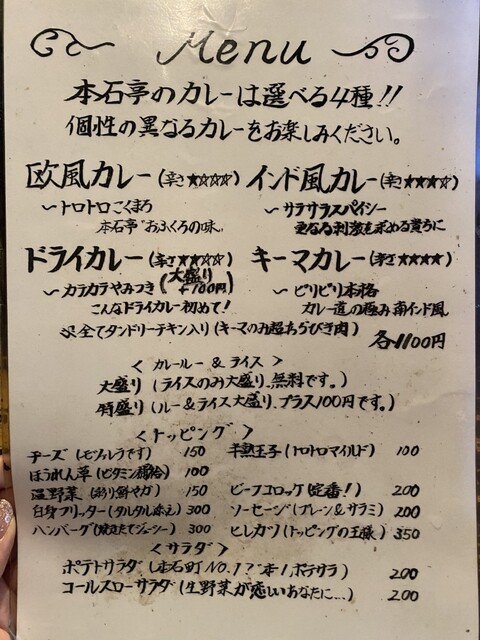 Menu
本石亭のカレーは選べる4種!!
個性の異なるカレーをお楽しみください。
欧風カレー(辛さ★☆☆☆)
〜トロトロこくまろ
本石亭"おふくろの味、
インド風カレー(辛さ★★☆☆)
〜サラサラスパイシー
更なる刺激を求める貴方に
ドライカレー(辛さ★★☆☆)
〜カラカラやみつき(大盛り+100円)
こんなドライカレー初めて!
キーマカレー(辛さ★★★★)
〜ピリピリ本格
カレー道の極み南インド風
※全てタンドリーチキン入り(キーマのみ超あらびき肉)
各1100円
<カレールー&ライス>
大盛り(ライスのみ大盛り、無料です。)
特盛り(ルー&ライス大盛り、プラス100円です。)
<トッピング>
チーズ(モツァレラです) 150
半熟玉子(トロトロマイルド) 100
ほうれん草(ビタミン補給) 100
温野菜(彩り鮮ヤガ) 150
ビーフコロッケ(定番!) 200
白身フリッター(タルタル添え) 300
ソーセージ(プレーン&サラミ) 200
ハンバーグ(焼きたてジューシー) 300
ヒレカツ(トッピングの王様) 350
<サラダ>
ポテトサラダ(本石町NO.1?"本1"ポテサラ) 200
コールスローサラダ(生野菜が恋しいあなたに…) 200